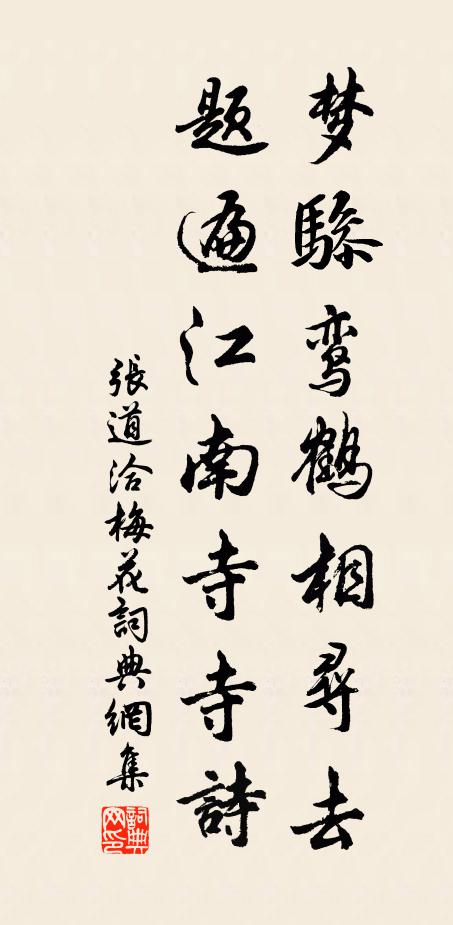 梦骖鸾鹤相寻去
题遍江南寺寺詩
張道洽梅花詞典網集
詞典网印